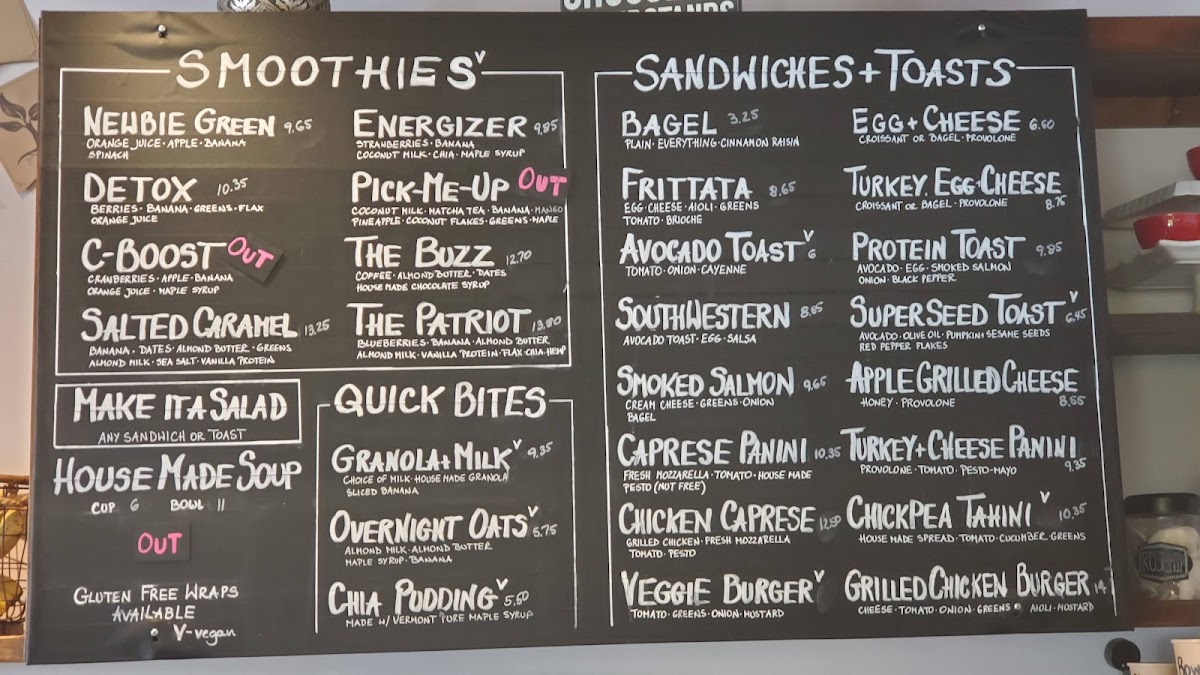 SMOOTHIES V
NEWBIE GREEN 9.65
ORANGE JUICE · APPLE · BANANA
SPINACH
DETOX 10.35
BERRIES · BANANA · GREENS · FLAX
ORANGE JUICE
C-BOOST OUT
CRANBERRIES · APPLE · BANANA
ORANGE JUICE · MAPLE SYRUP
SALTED CARAMEL 13.25
BANANA · DATES · ALMOND BUTTER · GREENS
ALMOND MILK · SEA SALT · VANILLA PROTEIN
ENERGIZER 9.85
STRANBERRIES · BANANA
COCONUT MILK · CHIA · MAPLE SYRUP
PICK-ME-UP OUT
COCONUT MILK · MATCHA TEA · BANANA · MANGO
PINEAPPLE · COCONUT FLAKES · GREENS · MAPLE
THE BUZZ 12.70
COFFEE · ALMOND BUTTER · DATES
HOUSE MADE CHOCOLATE SYRUP
THE PATRIOT 13.80
BLUEBERRIES · BANANA · ALMOND BUTTER
ALMOND MILK · VANILLA PROTEIN · FLAX · CHIA · HEMP
MAKE IT A SALAD
ANY SANDWICH OR TOAST
HOUSE MADE SOUP
CUP 6 BOWL 11
OUT
GLUTEN FREE WRAPS
AVAILABLE
V-vegan
QUICK BITES
GRANOLA + MILK V 9.35
CHOICE OF MILK · HOUSE MADE GRANOLA
SLICED BANANA
OVERNIGHT OATS V 5.75
ALMOND MILK · ALMOND BUTTER
MAPLE SYRUP · BANANA
CHIA PUDDING V 5.50
MADE W/ VERMONT PURE MAPLE SYRUP
SANDWICHES + TOASTS
BAGEL 3.25
PLAIN · EVERYTHING · CINNAMON RAISIN
FRITTATA 8.65
EGG · CHEESE · AIOLI · GREENS
TOMATO · BRIOCHE
AVOCADO TOAST V 6
TOMATO · ONION · CAYENNE
SOUTHWESTERN 8.85
AVOCADO TOAST · EGG · SALSA
SMOKED SALMON 9.65
CREAM CHEESE · GREENS · ONION
BAGEL
CAPRESE PANINI 10.35
FRESH MOZZARELLA · TOMATO · HOUSE MADE
PESTO (NUT FREE)
CHICKEN CAPRESE
GRILLED CHICKEN · FRESH MOZZARELLA
TOMATO · PESTO
VEGGIE BURGER V
TOMATO · GREENS · ONION · MUSTARD
EGG + CHEESE 6.60
CROISSANT OR BAGEL · PROVOLONE
TURKEY, EGG + CHEESE
CROISSANT OR BAGEL · PROVOLONE 8.75
PROTEIN TOAST 9.85
AVOCADO · EGG · SMOKED SALMON
ONION · BLACK PEPPER
SUPER SEED TOAST V 6.45
AVOCADO · OLIVE OIL · PUMPKIN · SESAME SEEDS
RED PEPPER FLAKES
APPLE GRILLED CHEESE
HONEY · PROVOLONE 8.55
TURKEY + CHEESE PANINI
PROVOLONE · TOMATO · PESTO-MAYO 9.35
CHICKPEA TAHINI V 10.35
HOUSE MADE SPREAD · TOMATO · CUCUMBER · GREENS
GRILLED CHICKEN BURGER 14
CHEESE · TOMATO · ONION · GREENS · AIOLI · MUSTARD